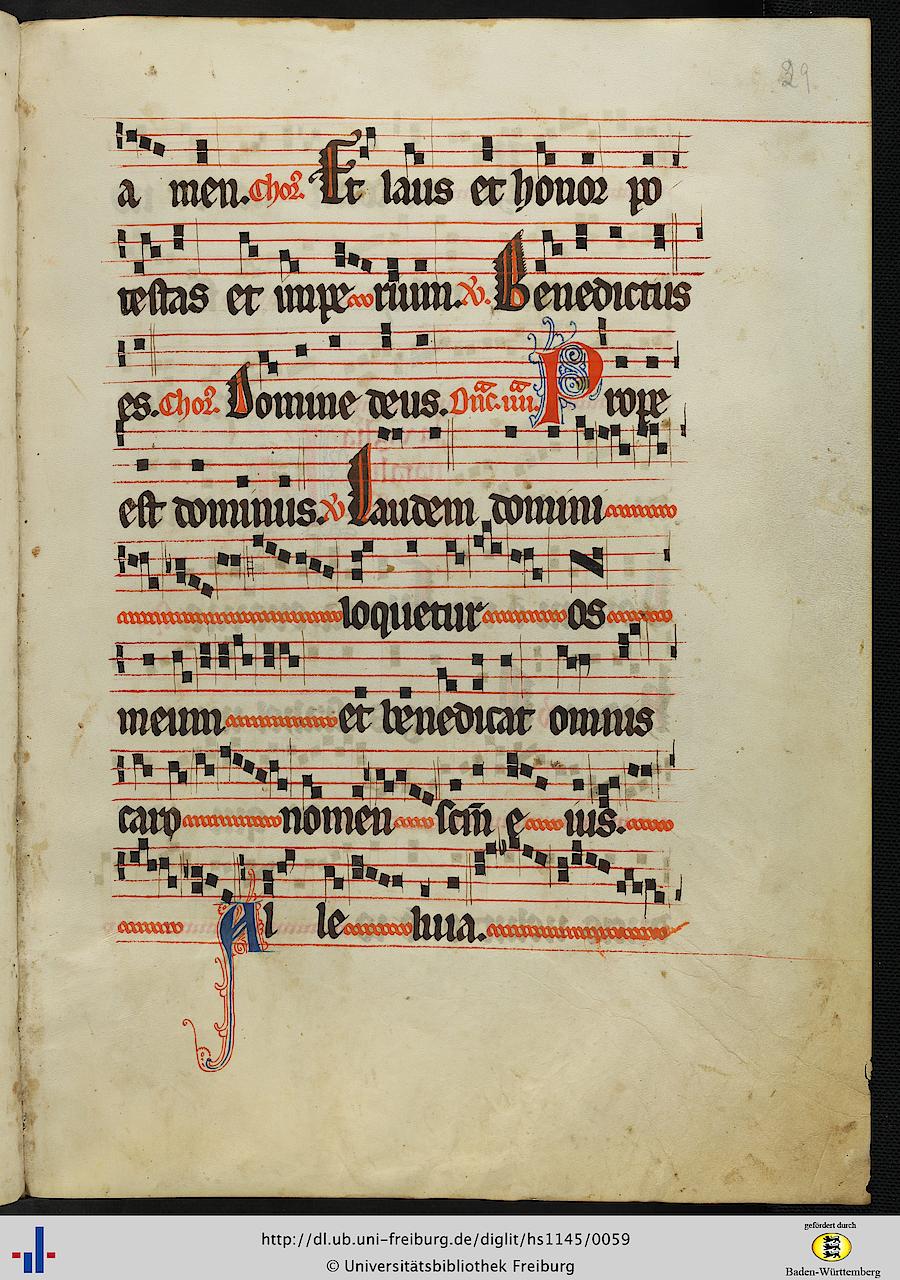 29
a men. Chor̄. Et laus et honor po
testas et impe rium. V̄. Benedictus
es. Chor̄. Domine deus. Dn̄c. iiii. Prope
est dominus. V̄ Laudem domini
loquetur os
meum et benedicat omnis
caro nomen scm̄ e ius.
Al le luia.
http://dl.ub.uni-freiburg.de/diglit/hs1145/0059
© Universitätsbibliothek Freiburg
gefördert durch
Baden-Württemberg